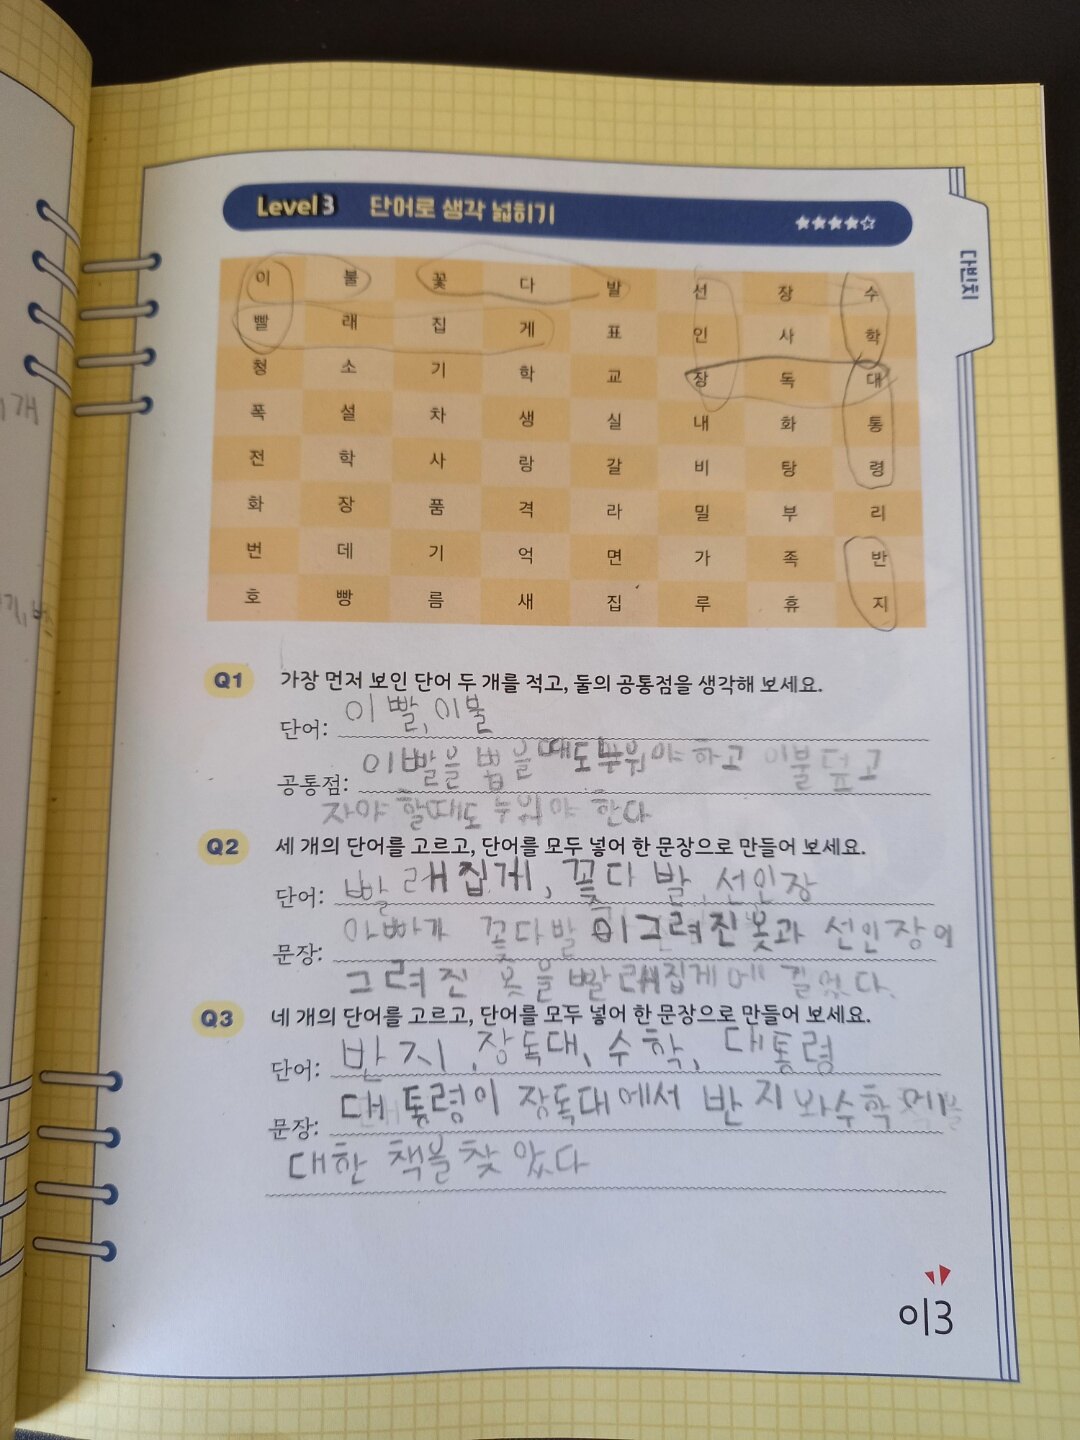 Level3 단어로 생각 넓히기 ★★★★☆
다빈치
이 불 꽃 다 발 선 장 수
빨 래 집 게 표 인 사 학
청 소 기 학 교 장 독 대
폭 설 차 생 실 내 화 통
전 학 사 랑 갈 비 탕 령
화 장 품 격 라 밀 부 리
번 데 기 억 면 가 족 반
호 빵 름 새 집 루 휴 지
Q1 가장 먼저 보인 단어 두 개를 적고, 둘의 공통점을 생각해 보세요.
단어: 이빨, 이불
공통점: 이빨을 뽑을때도 누워야하고 이불덮고
자야 할때도 누워야 한다
Q2 세 개의 단어를 고르고, 단어를 모두 넣어 한 문장으로 만들어 보세요.
단어: 빨래집게, 꽃다발, 선인장
문장: 아빠가 꽃다발이그려진옷과 선인장이
그려진 옷을 빨래집게에 걸었다.
Q3 네 개의 단어를 고르고, 단어를 모두 넣어 한 문장으로 만들어 보세요.
단어: 반지, 장독대, 수학, 대통령
문장: 대통령이 장독대에서 반지와수학에
대한 책을찾았다
이3
개